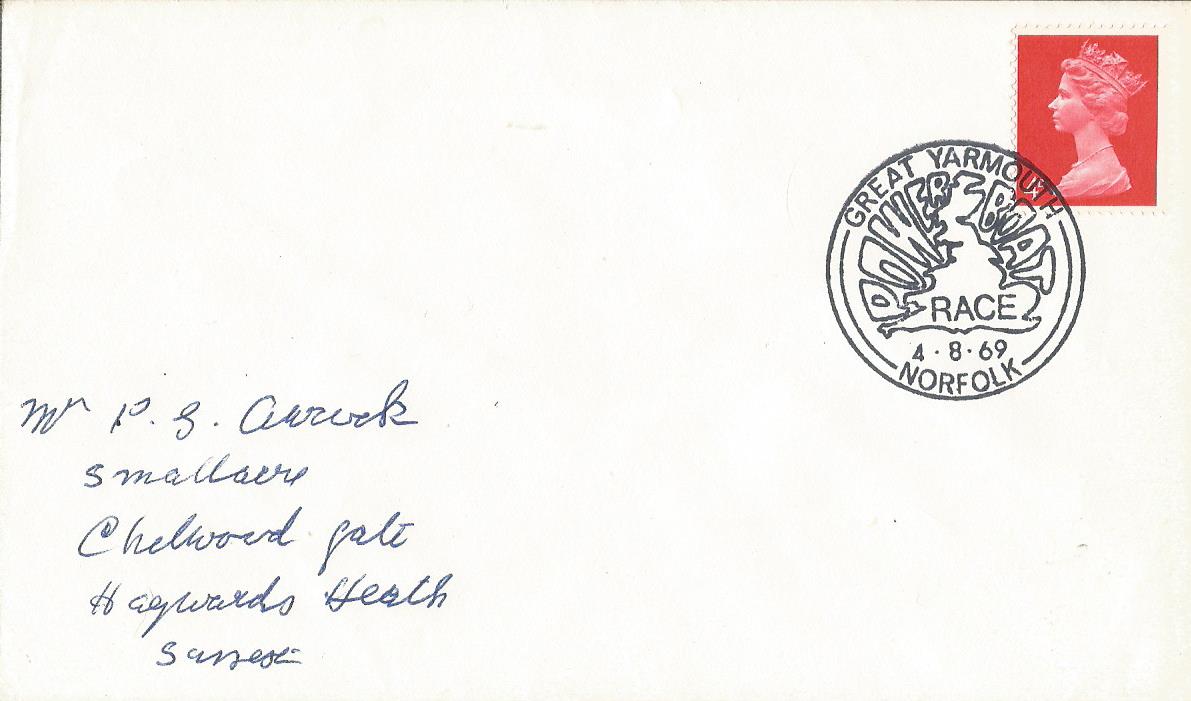 GREAT YARMOUTH
POWER BOAT
RACE
4·8·69
NORFOLK
Mr P. G.
Smallacre
Chelwood gate
Haywards Heath
Sussex